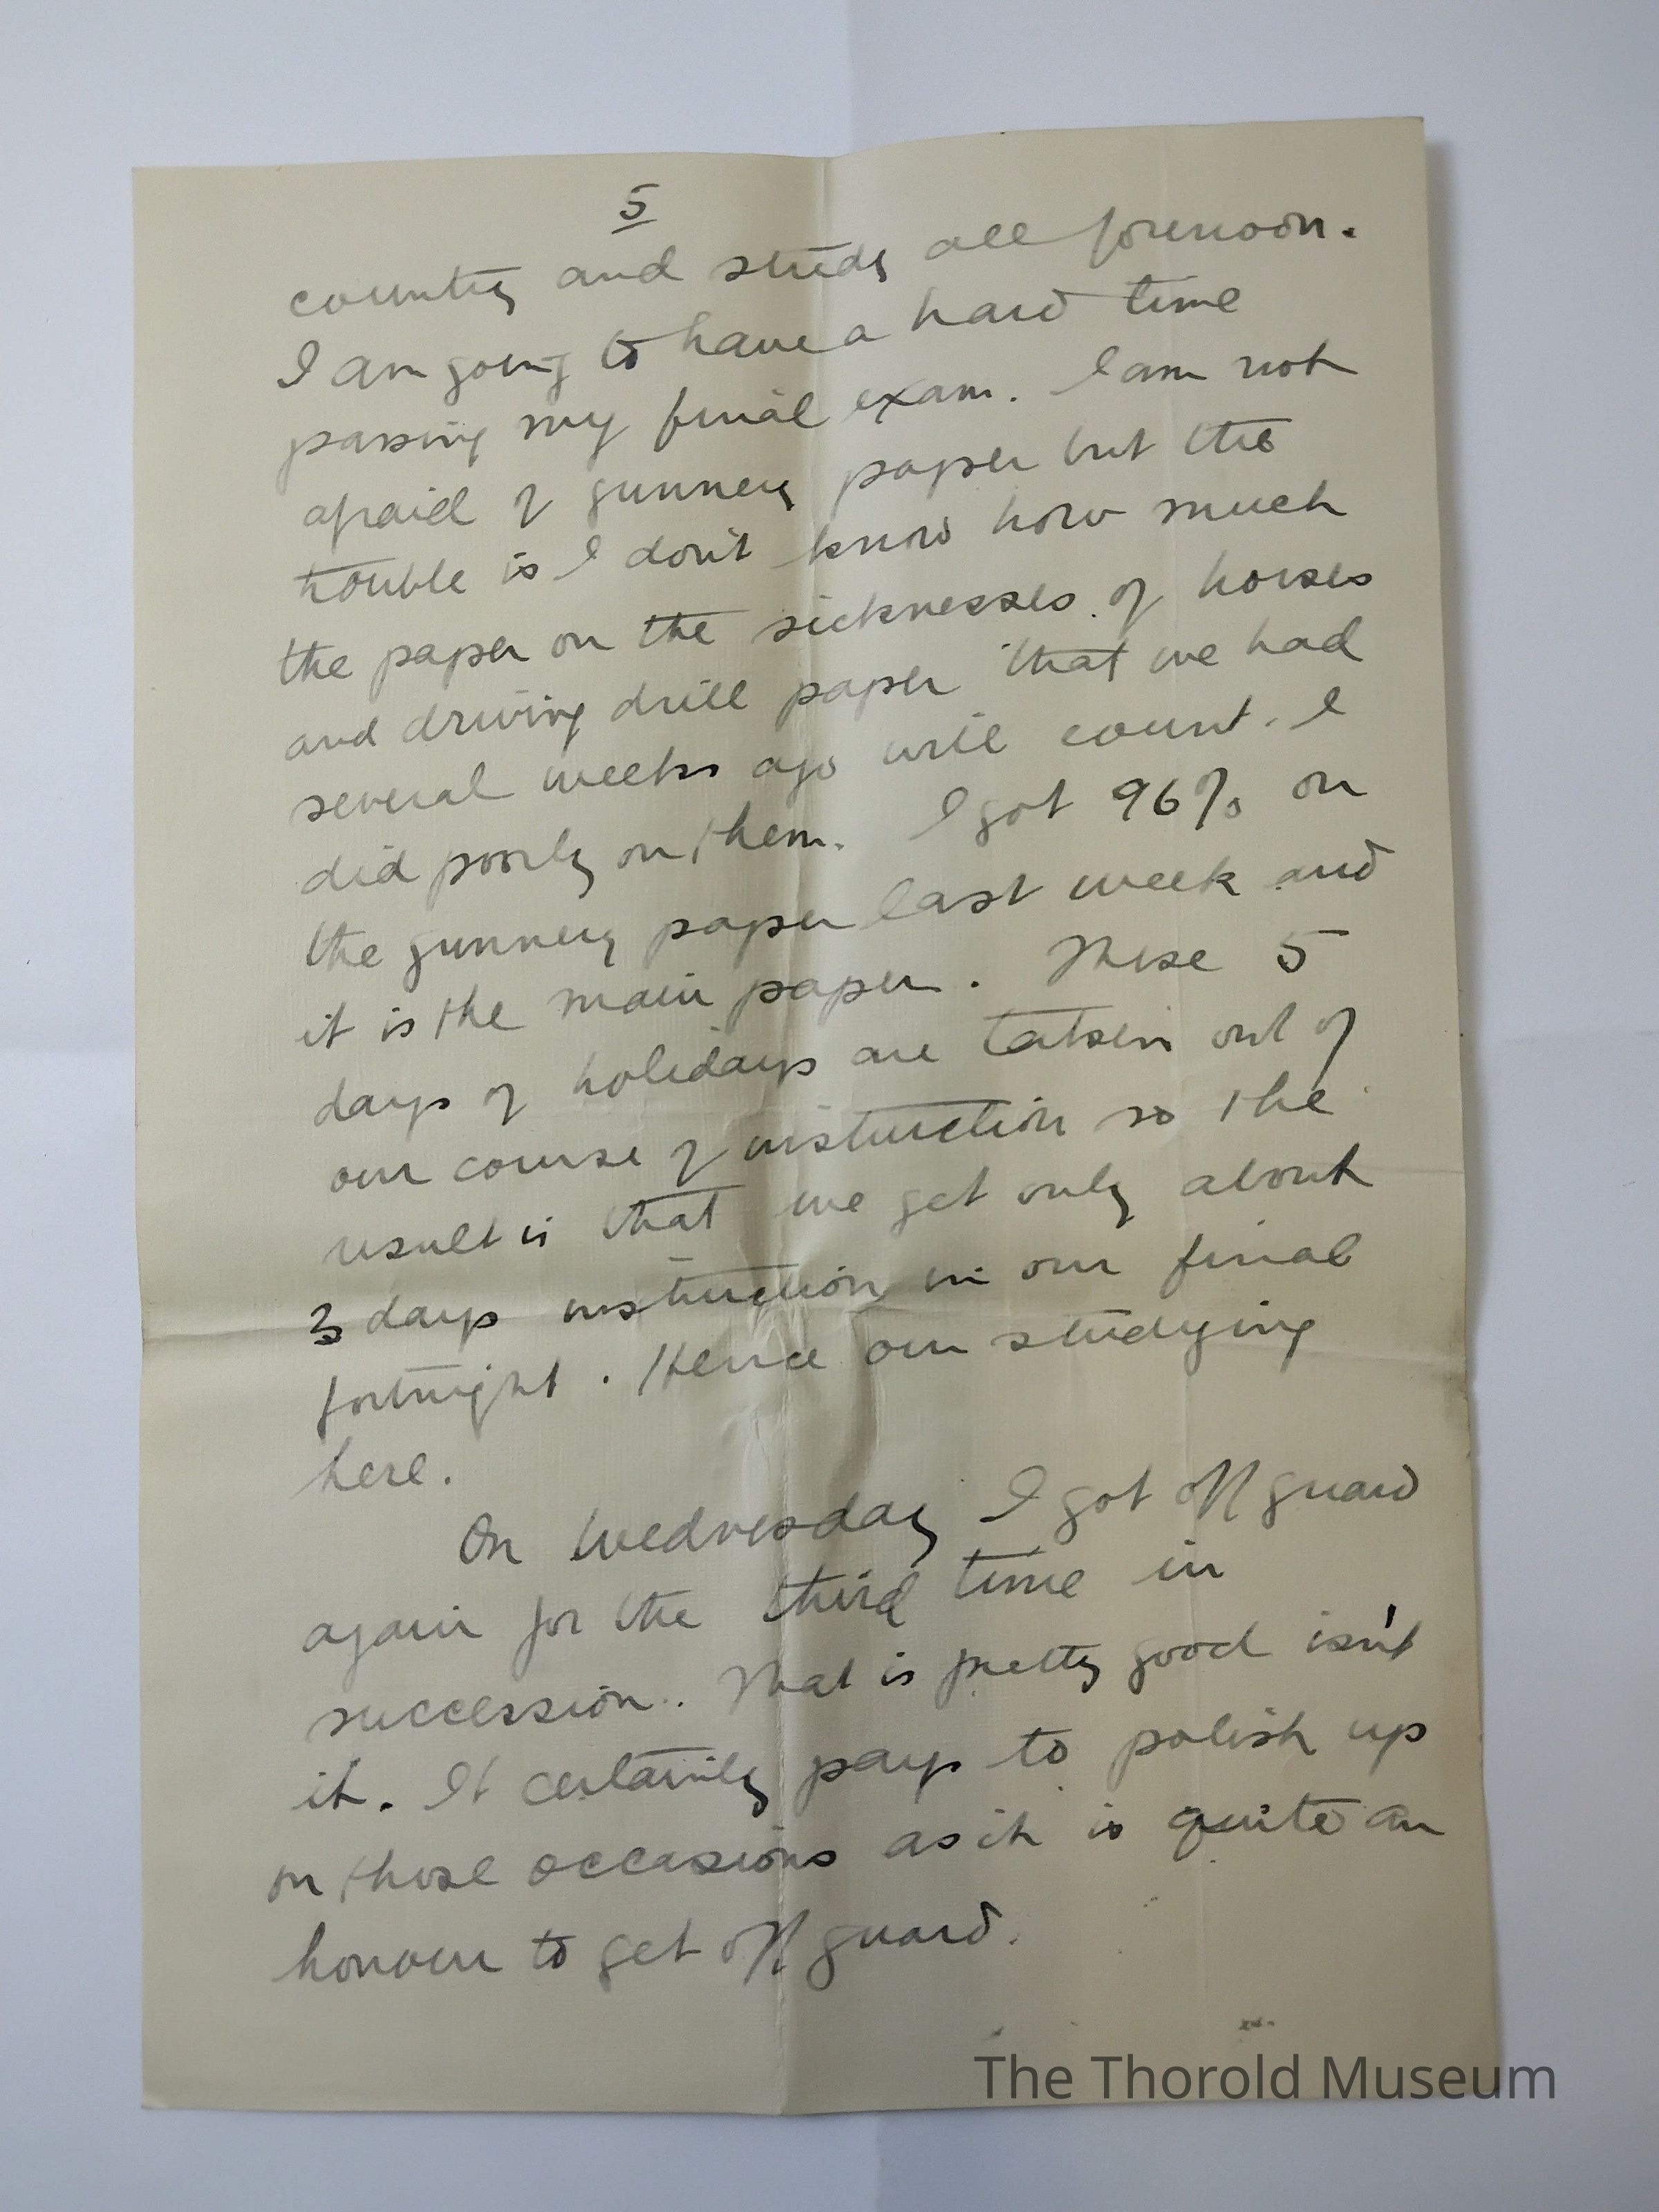 5
country and study all forenoon.
I am going to have a hard time
passing my final exam. I am not
afraid of gunnery paper but the
trouble is I don't know how much
the paper on the sicknesses of horses
and driving drill paper that we had
several weeks ago will count. I
did poorly on them. I got 96% on
the gunnery paper last week and
it is the main paper. These 5
days of holidays are taken out of
our course of instruction so the
result is that we get only about
3 days instruction in our final
fortnight. Hence our studying
here.
On Wednesday I got off guard
again for the third time in
succession. That is pretty good isn't
it. It certainly pays to polish up
on those occasions as it is quite an
honour to get off guard.
The Thorold Museum